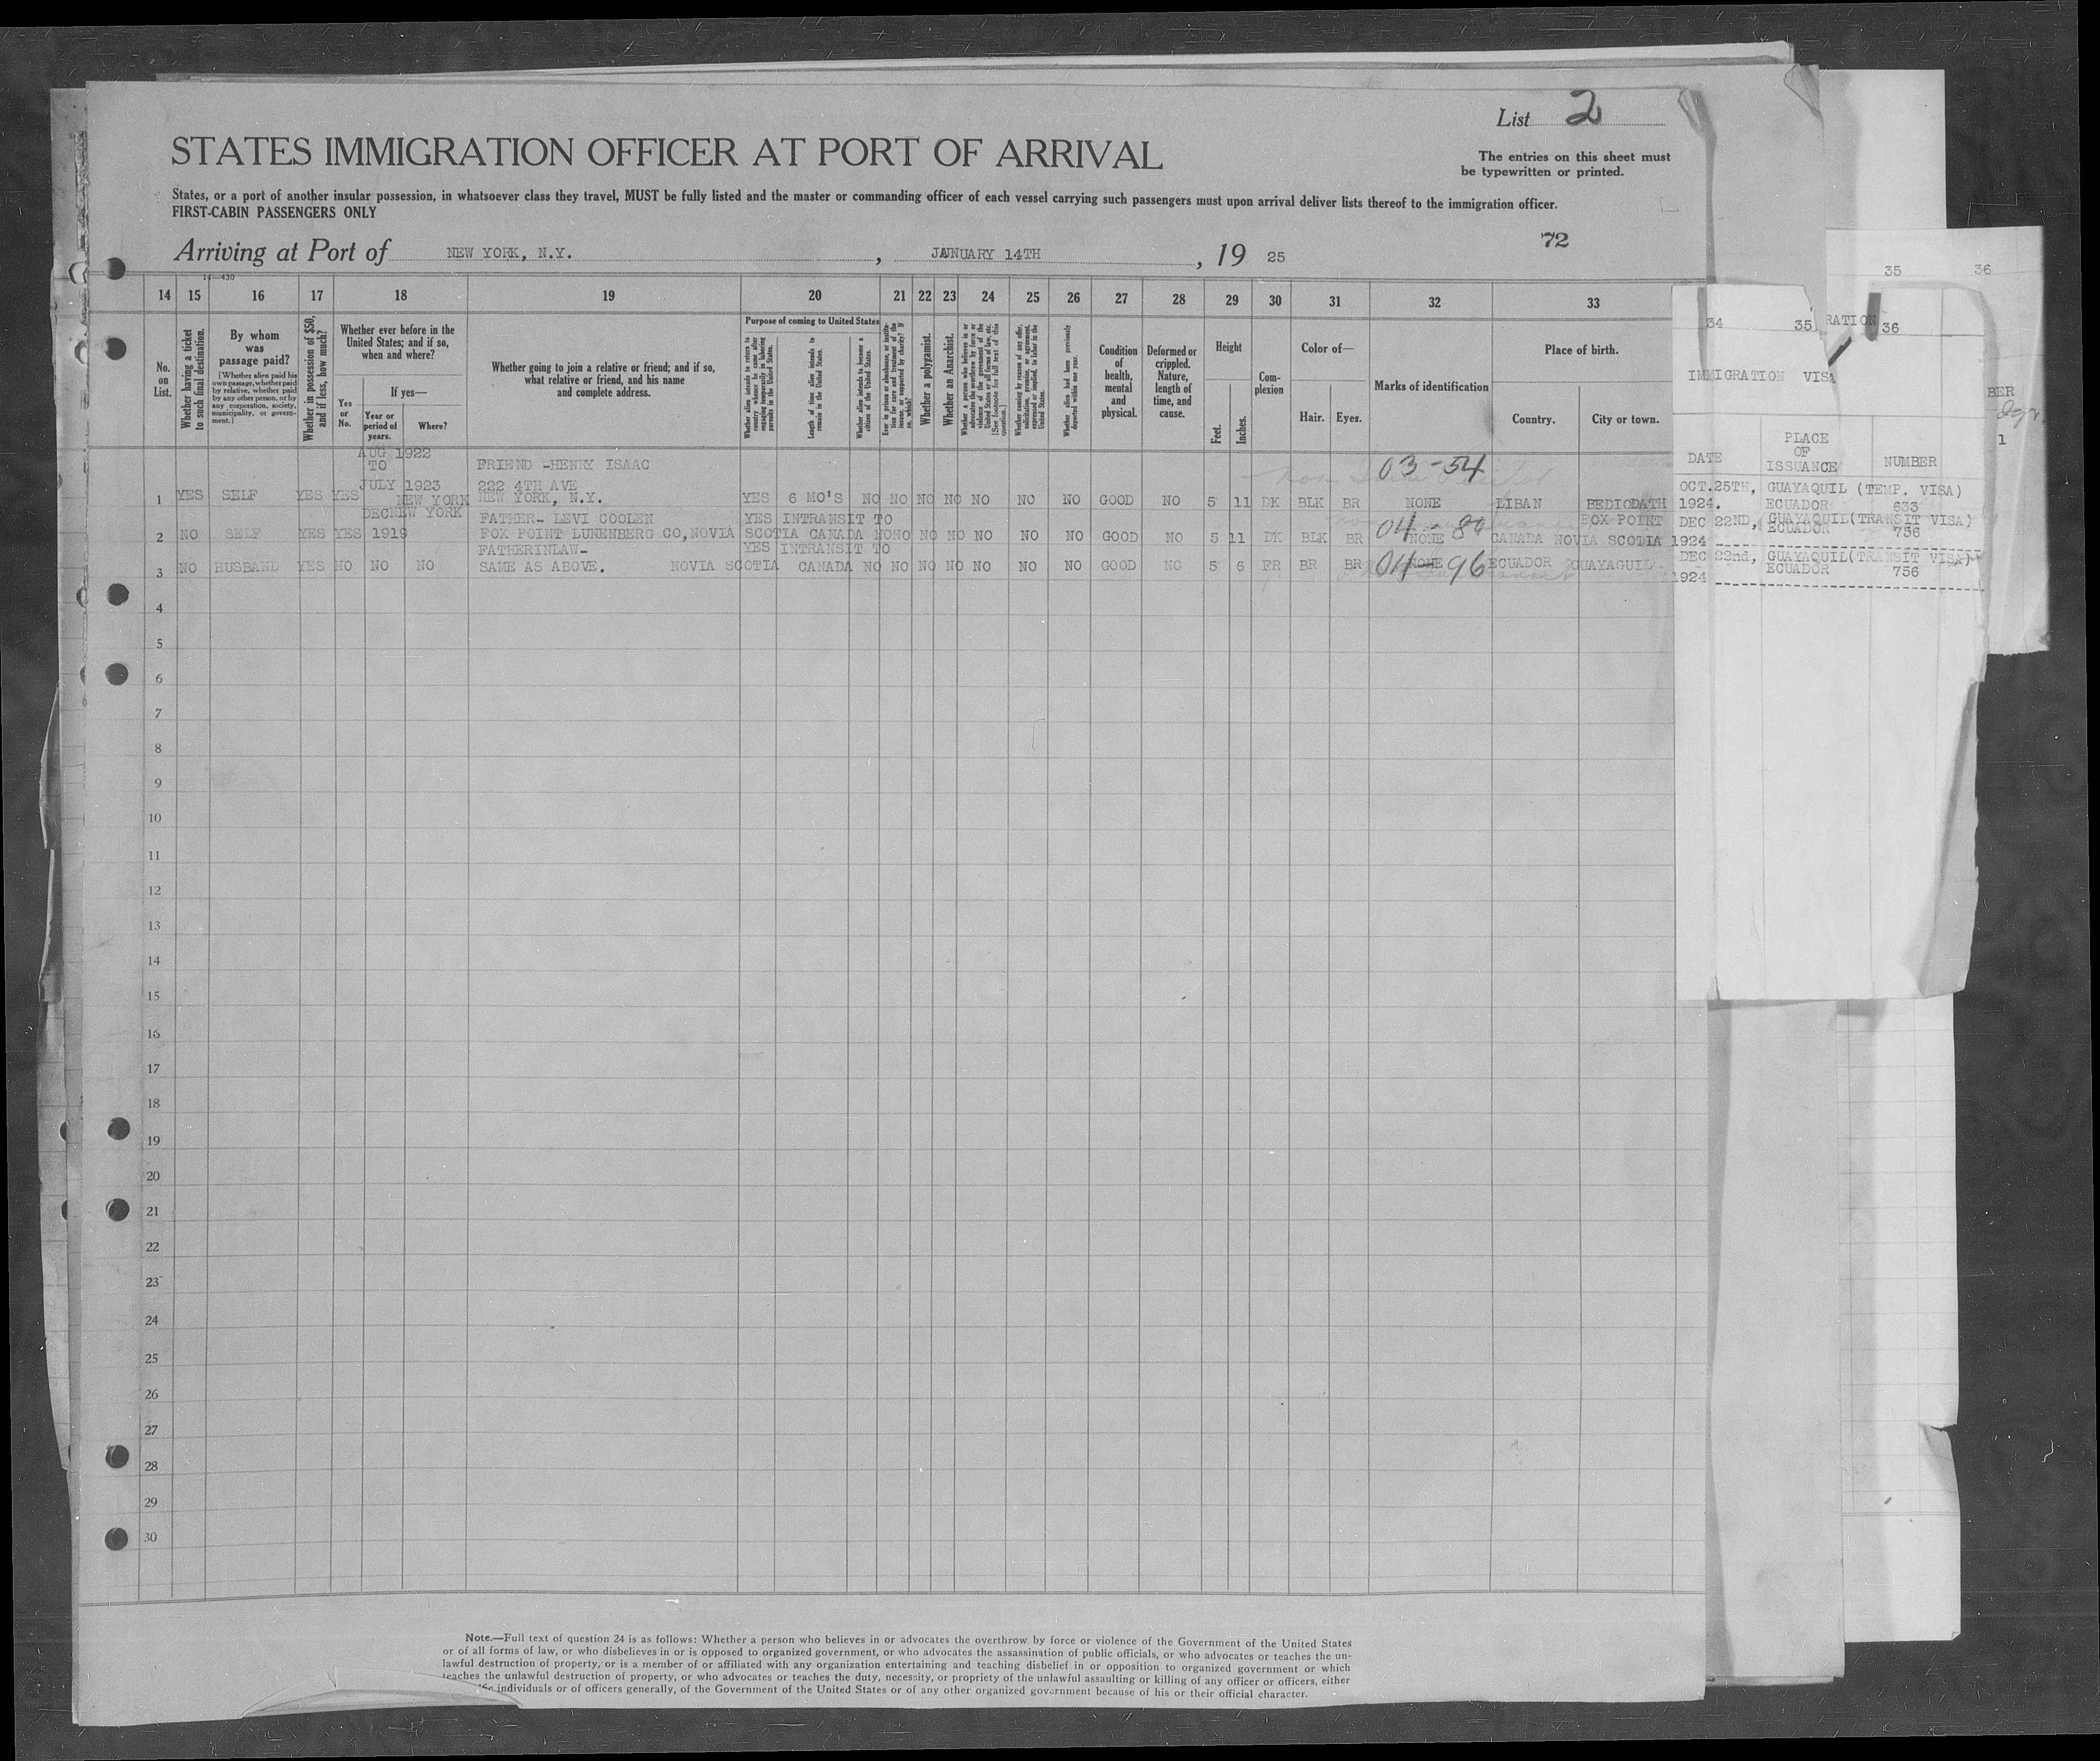 List 2
STATES IMMIGRATION OFFICER AT PORT OF ARRIVAL
The entries on this sheet must
be typewritten or printed.
States, or a port of another insular possession, in whatsoever class they travel, MUST be fully listed and the master or commanding officer of each vessel carrying such passengers must upon arrival deliver lists thereof to the immigration officer.
FIRST-CABIN PASSENGERS ONLY
72
Arriving at Port of NEW YORK, N.Y. , JANUARY 14TH , 19 25
14—430
35 36
14 15 16 17 18 19 20 21 22 23 24 25 26 27 28 29 30 31 32 33
34 35 RATION 36
IMMIGRATION VISA
BER
1
No. on List.
Whether having a ticket to such final destination.
By whom was passage paid?
[Whether alien paid his own passage, whether paid by relative, whether paid by any other person, or by any corporation, society, municipality, or government.]
Whether in possession of $50, and if less, how much?
Whether ever before in the United States; and if so, when and where?
Yes or No.
If yes—
Year or period of years.
Where?
Whether going to join a relative or friend; and if so, what relative or friend, and his name and complete address.
Purpose of coming to United States
Length of time alien intends to remain in the United States.
Whether alien intends to become a citizen of the United States.
Whether a polygamist.
Whether an Anarchist.
Whether alien had been previously deported within one year.
Condition of health, mental and physical.
Deformed or crippled. Nature, length of time, and cause.
Height
Feet. Inches.
Complexion
Color of—
Hair. Eyes.
Marks of identification
Place of birth.
Country. City or town.
DATE
PLACE OF ISSUANCE
NUMBER
AUG 1922
TO FRIEND -HENRY ISAAC 03-54
JULY 1923 222 4TH AVE OCT.25TH, GUAYAQUIL (TEMP. VISA)
1 YES SELF YES YES NEW YORK NEW YORK, N.Y. YES 6 MO'S NO NO NO NO NO NO NO GOOD NO 5 11 DK BLK BR NONE LIBAN BEDIODATH 1924. ECUADOR 633
DEC NEW YORK FATHER- LEVI COOLEN YES INTRANSIT TO FOX POINT DEC 22ND, GUAYAQUIL(TRANSIT VISA)
2 NO SELF YES YES 1919 FOX POINT LUNENBERG CO,NOVIA SCOTIA CANADA NO NO NO NO NO NO NO GOOD NO 5 11 DK BLK BR NONE 04-80 CANADA NOVIA SCOTIA 1924 ECUADOR 756
FATHERINLAW- YES INTRANSIT TO DEC 22nd, GUAYAQUIL(TRANSIT VISA)
3 NO HUSBAND YES NO NO NO SAME AS ABOVE. NOVIA SCOTIA CANADA NO NO NO NO NO NO NO GOOD NO 5 6 FR BR BR NONE 04-96 ECUADOR GUAYAGUIL. 1924 ECUADOR 756
4
5
6
7
8
9
10
11
12
13
14
15
16
17
18
19
20
21
22
23
24
25
26
27
28
29
30
Note.—Full text of question 24 is as follows: Whether a person who believes in or advocates the overthrow by force or violence of the Government of the United States
or of all forms of law, or who disbelieves in or is opposed to organized government, or who advocates the assassination of public officials, or who advocates or teaches the un-
lawful destruction of property, or is a member of or affiliated with any organization entertaining and teaching disbelief in or opposition to organized government or which
teaches the unlawful destruction of property, or who advocates or teaches the duty, necessity, or propriety of the unlawful assaulting or killing of any officer or officers, either
individuals or of officers generally, of the Government of the United States or of any other organized government because of his or their official character.